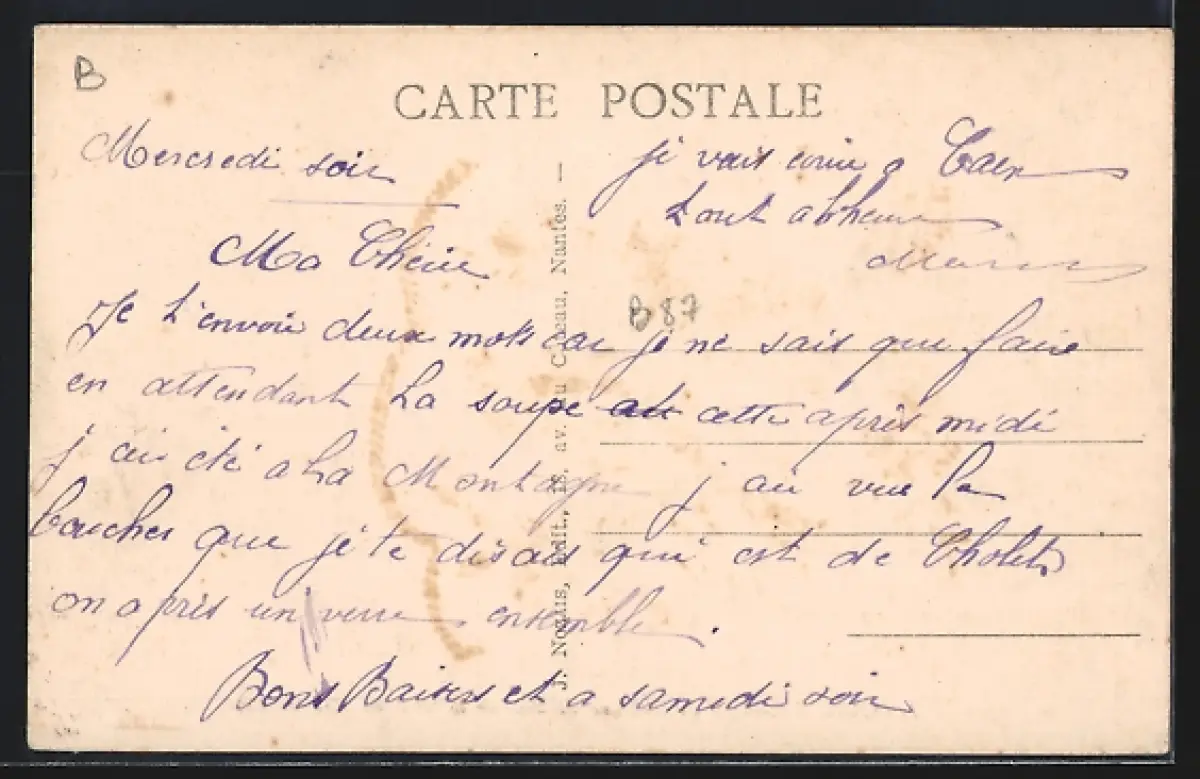 B
CARTE POSTALE
Mercredi soir
Ma Chérie
Je t'envoie deux mots car je ne sais que faire
en attendant la soupe cette apres midi
j ai été a La Montagne j ai vue le
boucher que je te disais qui est de Cholet
on a pris un verre ensemble.
Bons Baisers et a samedi soir
je vais a Caen
tout a lheure
B 87
J. Nozais, édit., 18. av. du Nantes. —